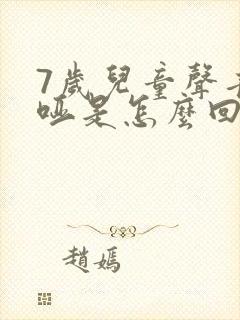 7歲兒童聲
啞是怎麼回
趙媽